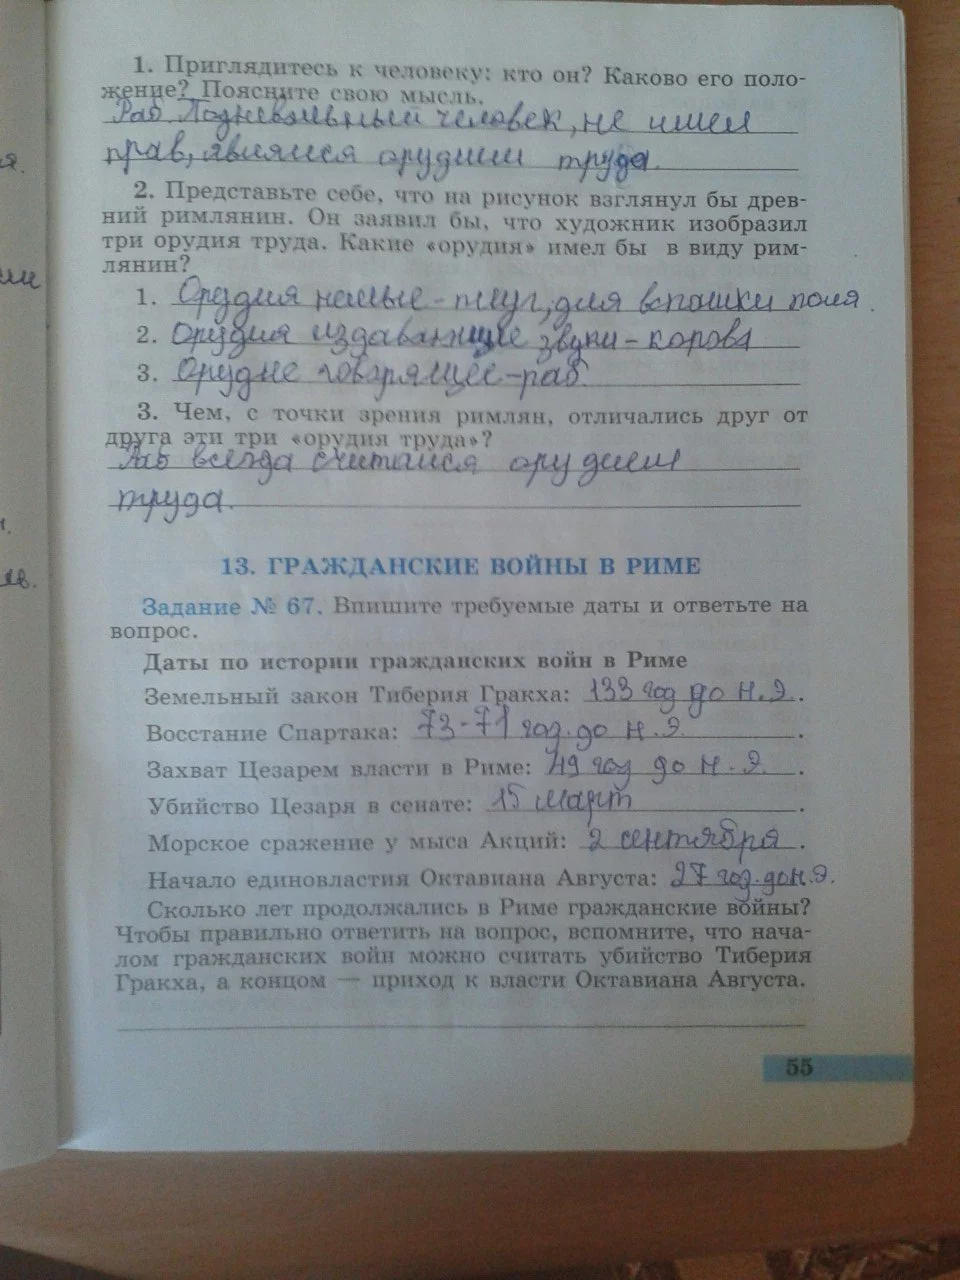 1. Приглядитесь к человеку: кто он? Каково его поло-
жение? Поясните свою мысль.
Раб Подневольный человек, не имел
прав, являлся орудием труда.
2. Представьте себе, что на рисунок взглянул бы древ-
ний римлянин. Он заявил бы, что художник изобразил
три орудия труда. Какие «орудия» имел бы в виду рим-
лянин?
1. Орудия немые - плуг, для вспашки поля.
2. Орудия издавающие звуки - корова
3. Орудие говорящее - раб.
3. Чем, с точки зрения римлян, отличались друг от
друга эти три «орудия труда»?
Раб всегда считался орудием
труда.
13. ГРАЖДАНСКИЕ ВОЙНЫ В РИМЕ
Задание № 67. Впишите требуемые даты и ответьте на
вопрос.
Даты по истории гражданских войн в Риме
Земельный закон Тиберия Гракха: 133 год до н.э.
Восстание Спартака: 73-71 год. до н.э.
Захват Цезарем власти в Риме: 49 год до н.э.
Убийство Цезаря в сенате: 15 март.
Морское сражение у мыса Акций: 2 сентября.
Начало единовластия Октавиана Августа: 27 год. до н.э.
Сколько лет продолжались в Риме гражданские войны?
Чтобы правильно ответить на вопрос, вспомните, что нача-
лом гражданских войн можно считать убийство Тиберия
Гракха, а концом — приход к власти Октавиана Августа.
55